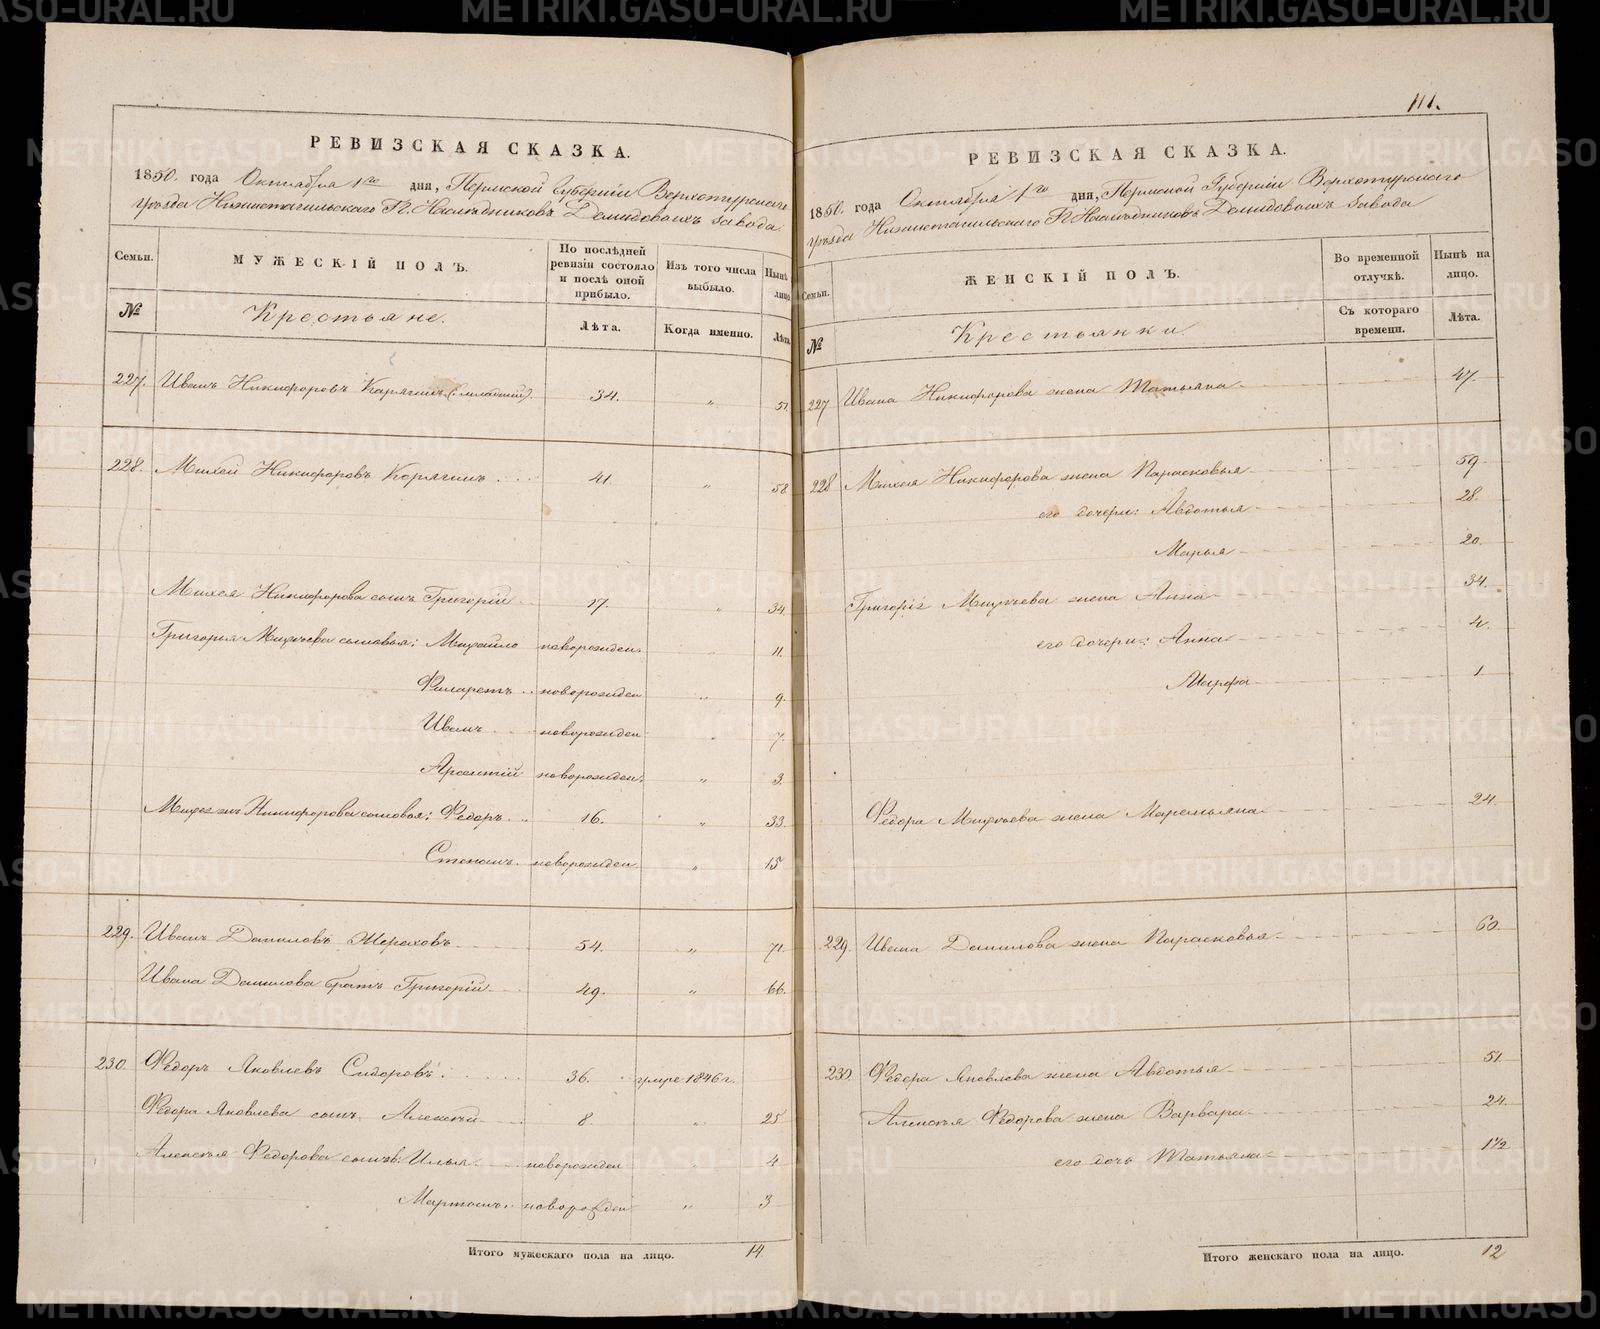 111.
РЕВИЗСКАЯ СКАЗКА.
1850. года Октября 1го дня, Пермской Губернiи Верхотурскаго
уѣзда Нижнетагильскаго Г. Наслѣдниковъ Демидовыхъ завода
Семьи.
МУЖЕСКIЙ ПОЛЪ.
По послѣдней ревизiи состояло и послѣ оной прибыло.
Изъ того числа выбыло.
Нынѣ лицо
№
Крестьяне.
Лѣта.
Когда именно.
Лѣта
227. Иванъ Никифоровъ Карягинъ (младшiй). 34. „ 51.
228. Михей Никифоровъ Корягинъ 41. „ 58
Михея Никифорова сынъ Григорiй 17. „ 34
Григорья Михѣева сыновья: Михайло новорожден. „ 11.
Филаретъ новорожден „ 9.
Иванъ новорожден „ 7.
Арсентiй новорожден. „ 3.
Никифорова сыновья: Федоръ 16. „ 33.
Степанъ новорожден „ 15
229. Иванъ Даниловъ Жераховъ 54. „ 71.
Ивана Данилова братъ Григорiй 49. „ 66.
230. Федоръ Яковлевъ Сидоровъ 36. умре 1846 г.
Федора Яковлева сынъ Алексѣй 8. „ 25
Алексѣя Федорова сынов. Илья новорожден „ 4
Мартынъ новорожден „ 3
Итого мужескаго пола на лицо. 14
РЕВИЗСКАЯ СКАЗКА.
1850. года Октября 1го дня, Пермской Губернiи Верхотурскаго
уѣзда Нижнетагильскаго Г. Наслѣдниковъ Демидовыхъ завода
Семьи.
ЖЕНСКIЙ ПОЛЪ.
Во временной отлучкѣ.
Нынѣ на лицо.
№
Крестьянки
Съ котораго времени.
Лѣта.
227 Ивана Никифорова жена Татьяна 47.
228 Михея Никифорова жена Парасковья 59.
его дочери: Авдотья 28.
Марья 20.
Григорiя Михѣева жена Анна 34.
его дочери: Анна 4.
Марфа 1
Федора Михѣева жена Маремьяна 24.
229. Ивана Данилова жена Парасковья 60.
230. Федора Яковлева жена Авдотья 51.
Алексѣя Федорова жена Варвара 24.
его дочь Татьяна 1 1/2
Итого женскаго пола на лицо. 12
METRIKI.GASO-URAL.RU